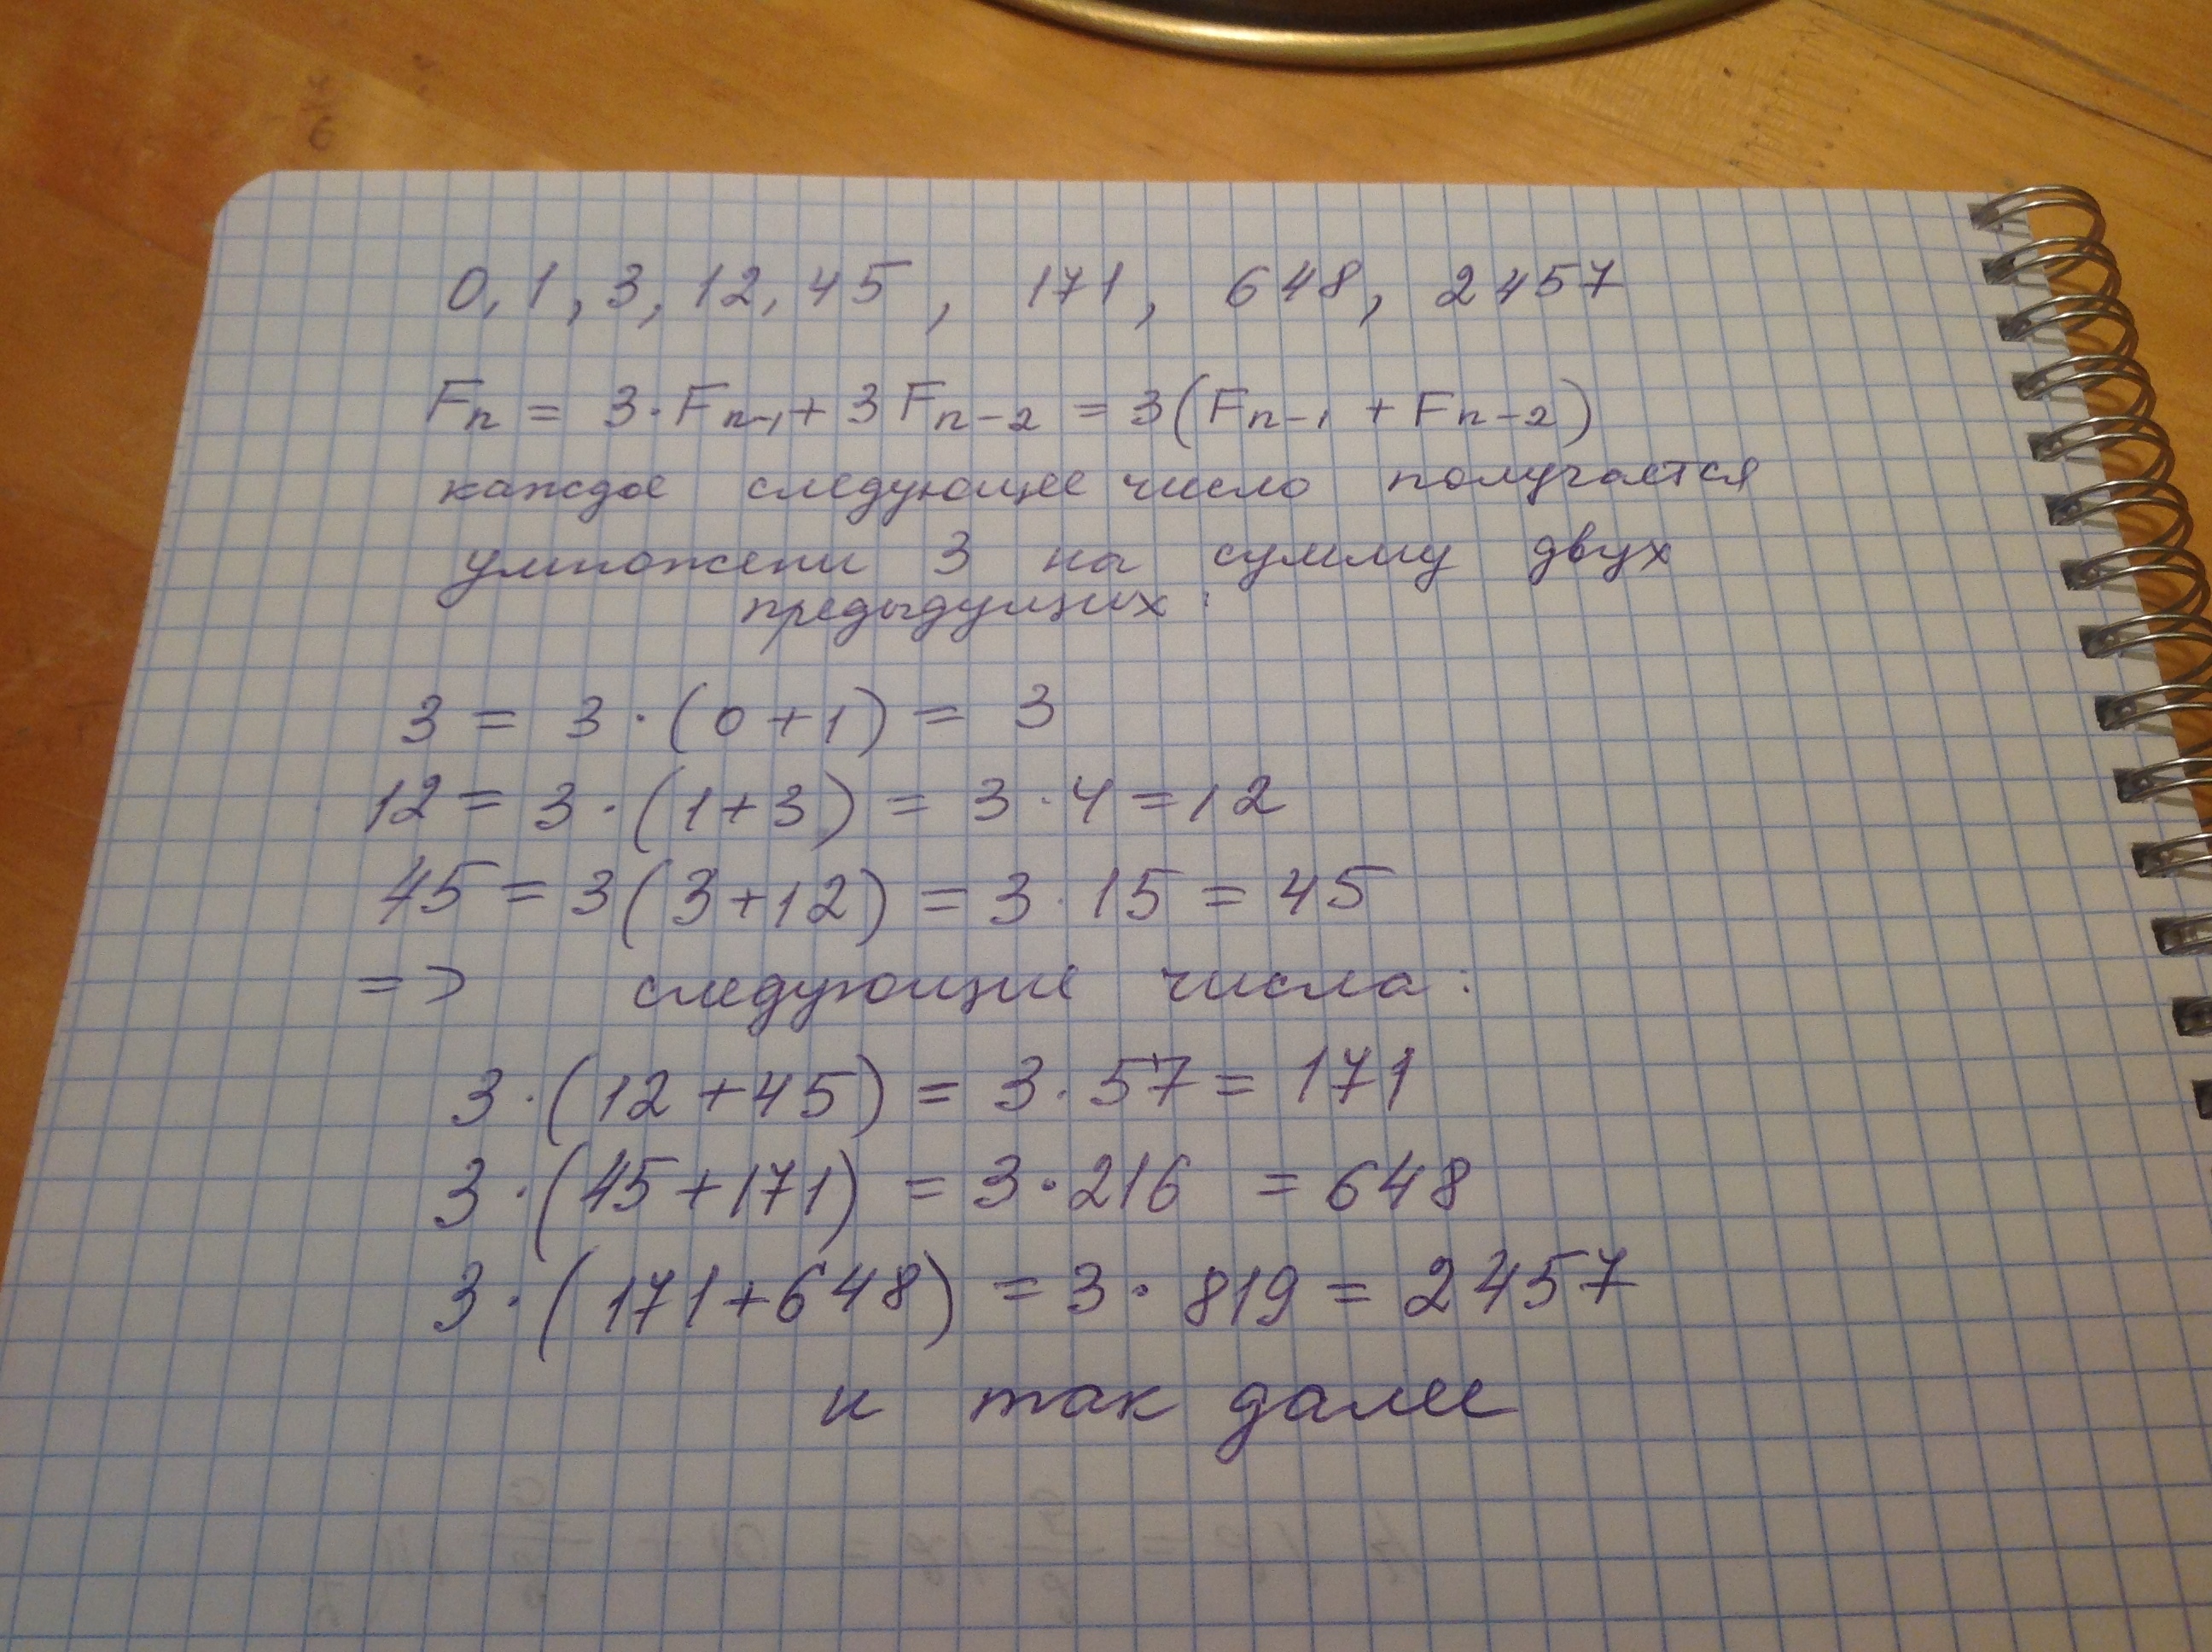 0, 1, 3, 12, 45, 171, 648, 2457
Fn = 3·Fn-1 + 3Fn-2 = 3(Fn-1 + Fn-2)
каждое следующее число получается
умножени 3 на сумму двух
предыдущих:
3 = 3·(0+1) = 3
12 = 3·(1+3) = 3·4 = 12
45 = 3(3+12) = 3·15 = 45
=> следующие числа:
3·(12+45) = 3·57 = 171
3·(45+171) = 3·216 = 648
3·(171+648) = 3·819 = 2457
и так далее